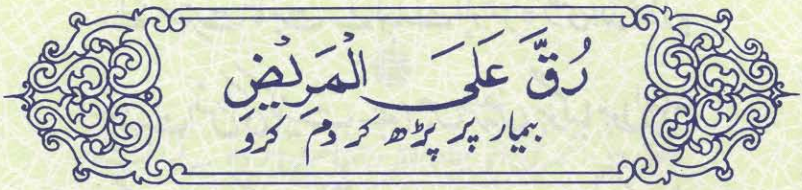 رُقَّ عَلَى الْمَرِيْضِ
بیمار پر پڑھ کر دم کرو